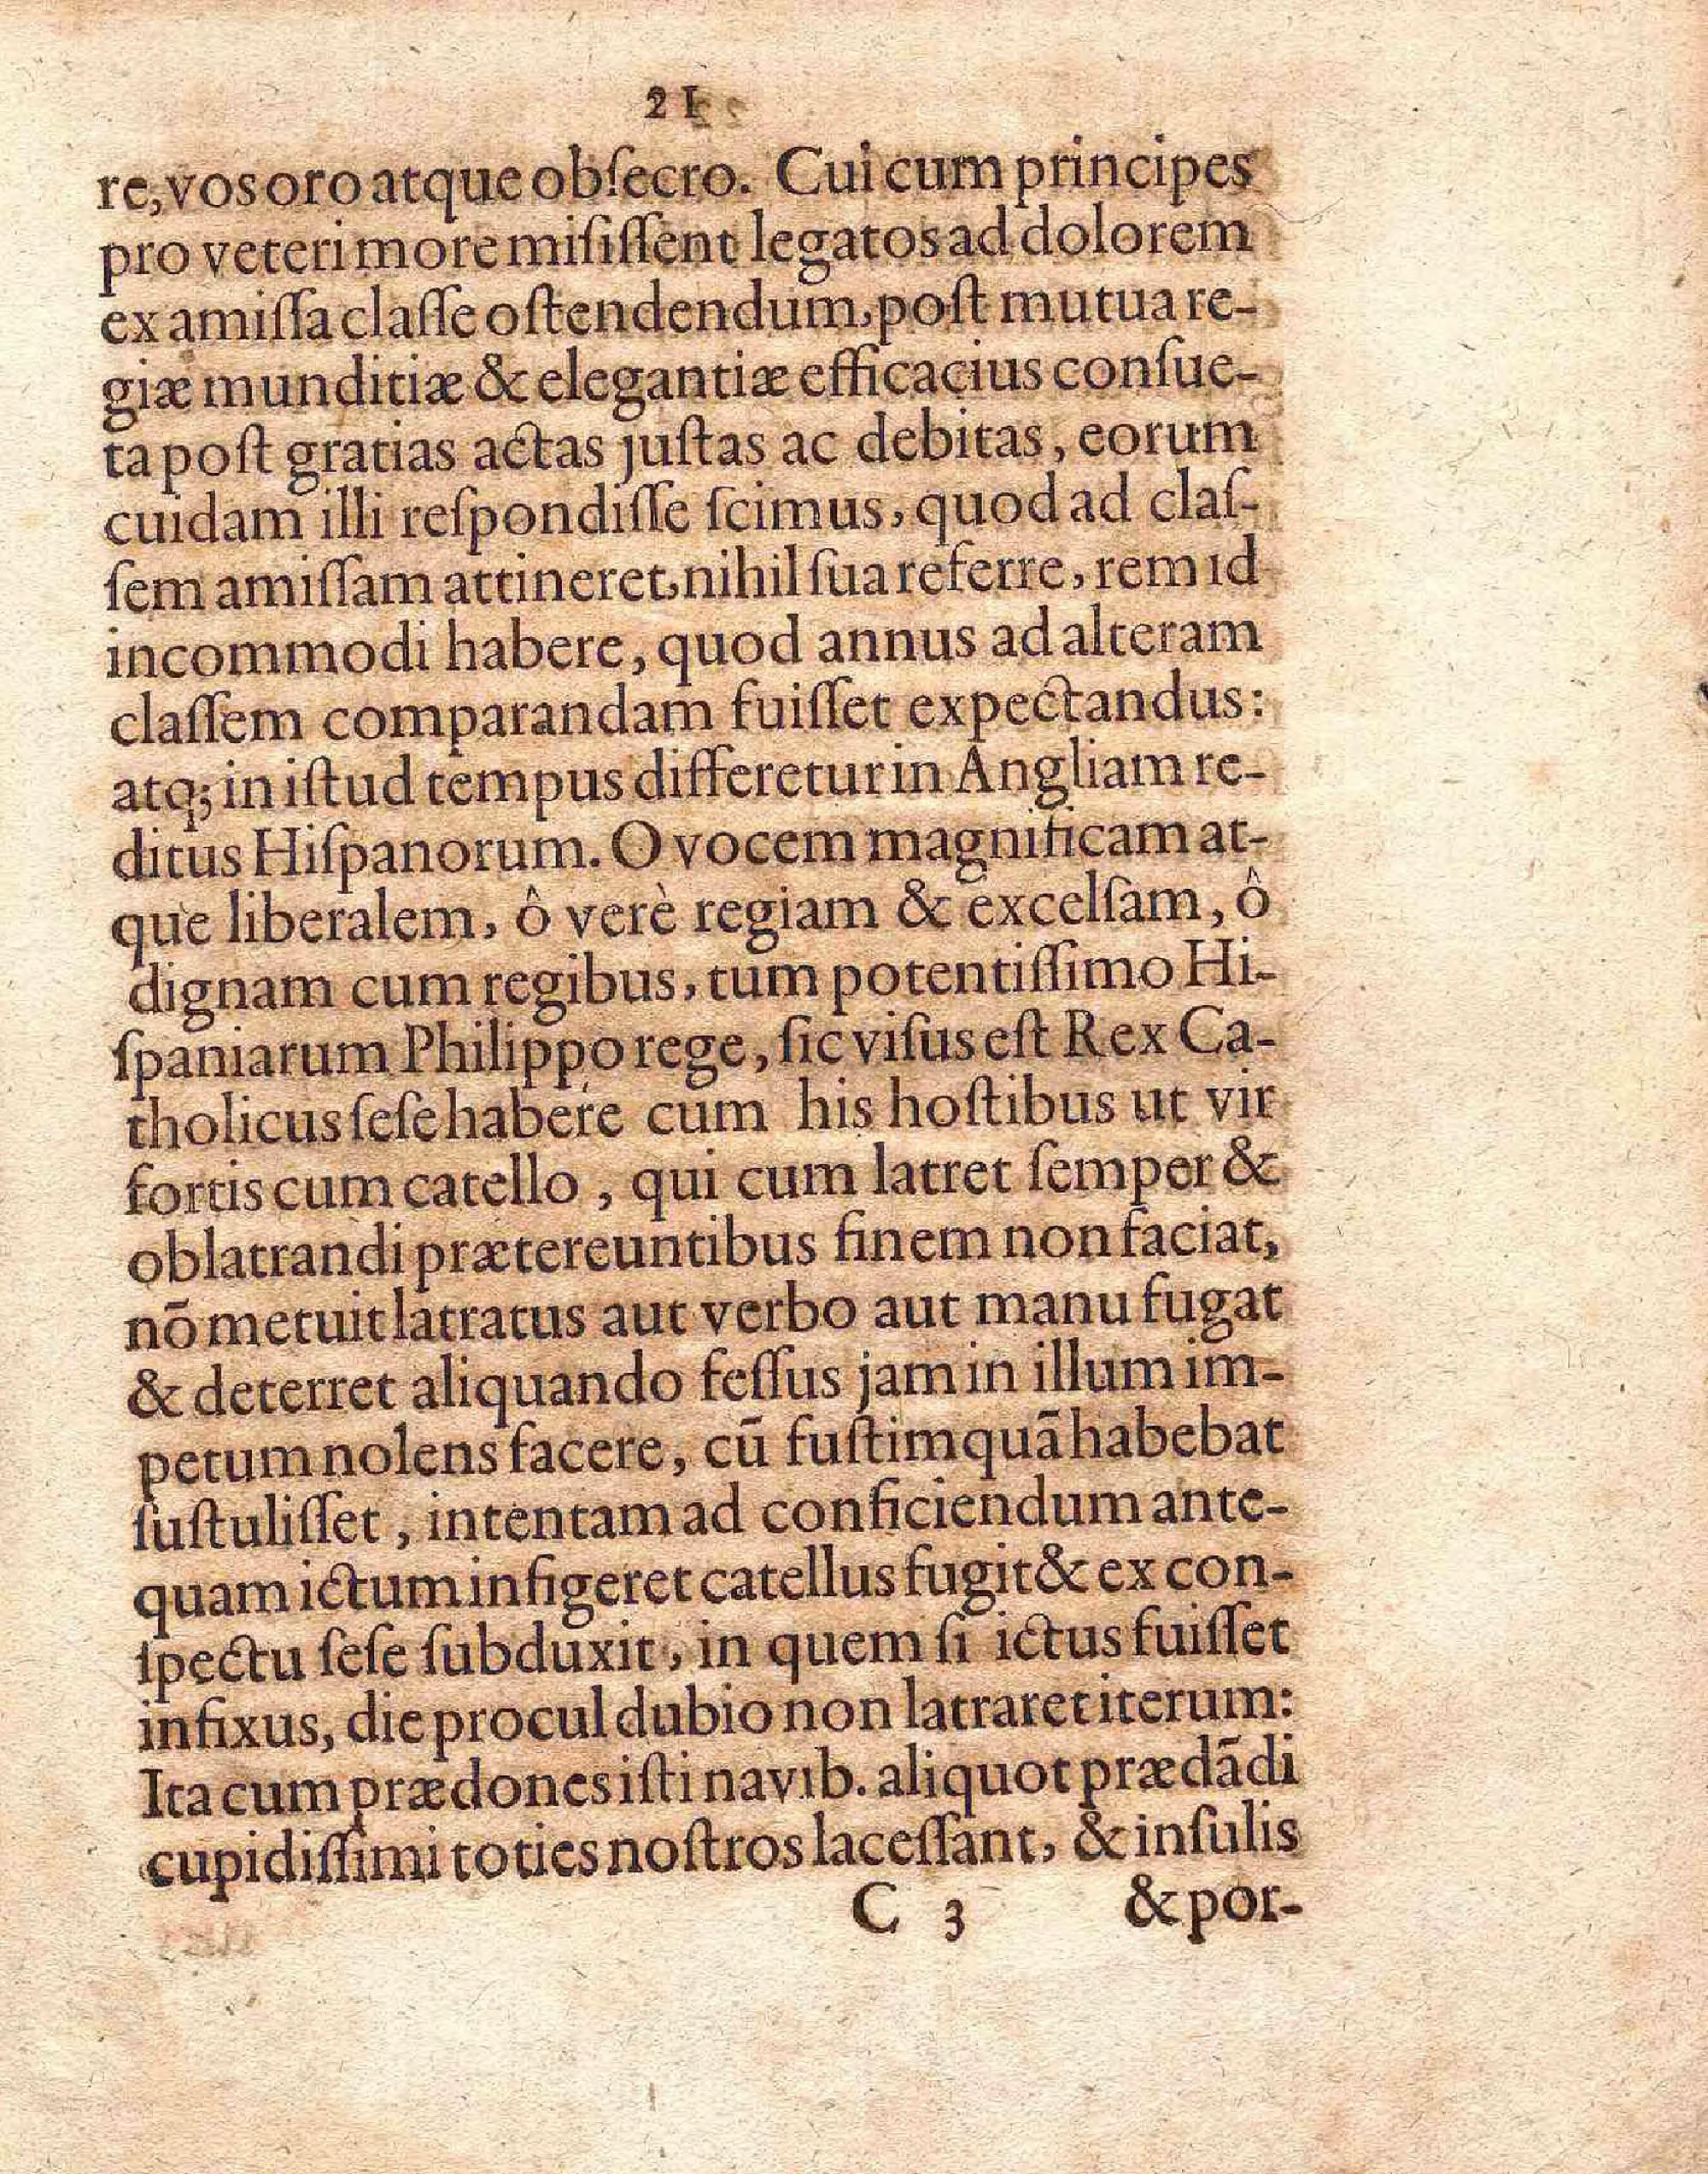 21
re, vos oro atque obſecro. Cui cum principes
pro veteri more miſiſſent legatos ad dolorem
ex amiſſa claſſe oſtendendum, poſt mutua re-
giæ munditiæ & elegantiæ efficacius conſue-
ta poſt gratias actas juſtas ac debitas, eorum
cuidam illi reſpondiſſe ſcimus, quod ad claſ-
ſem amiſſam attineret, nihil ſua referre, rem id
incommodi habere, quod annus ad alteram
claſſem comparandam fuiſſet expectandus:
atq; in iſtud tempus differetur in Angliam re-
ditus Hiſpanorum. O vocem magnificam at-
que liberalem, ô verè regiam & excelſam, ô
dignam cum regibus, tum potentiſſimo Hi-
ſpaniarum Philippo rege, ſic viſus eſt Rex Ca-
tholicus ſeſe habere cum his hoſtibus ut vir
fortis cum catello, qui cum latret ſemper &
oblatrandi prætereuntibus finem non faciat,
nō metuit latratus aut verbo aut manu fugat
& deterret aliquando feſſus jam in illum im-
petum nolens facere, cū fuſtim quā habebat
ſuſtuliſſet, intentam ad conficiendum ante-
quam ictum infigeret catellus fugit & ex con-
ſpectu ſeſe ſubduxit, in quem ſi ictus fuiſſet
infixus, die procul dubio non latraret iterum:
Ita cum prædones iſti navib. aliquot prædādi
cupidiſſimi toties noſtros laceſſant, & inſulis
C 3 & por-